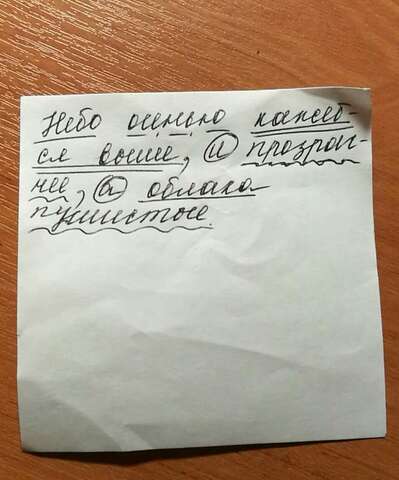 Небо осенью кажет-
ся выше, и прозрач-
нее, а облака
пушистые.